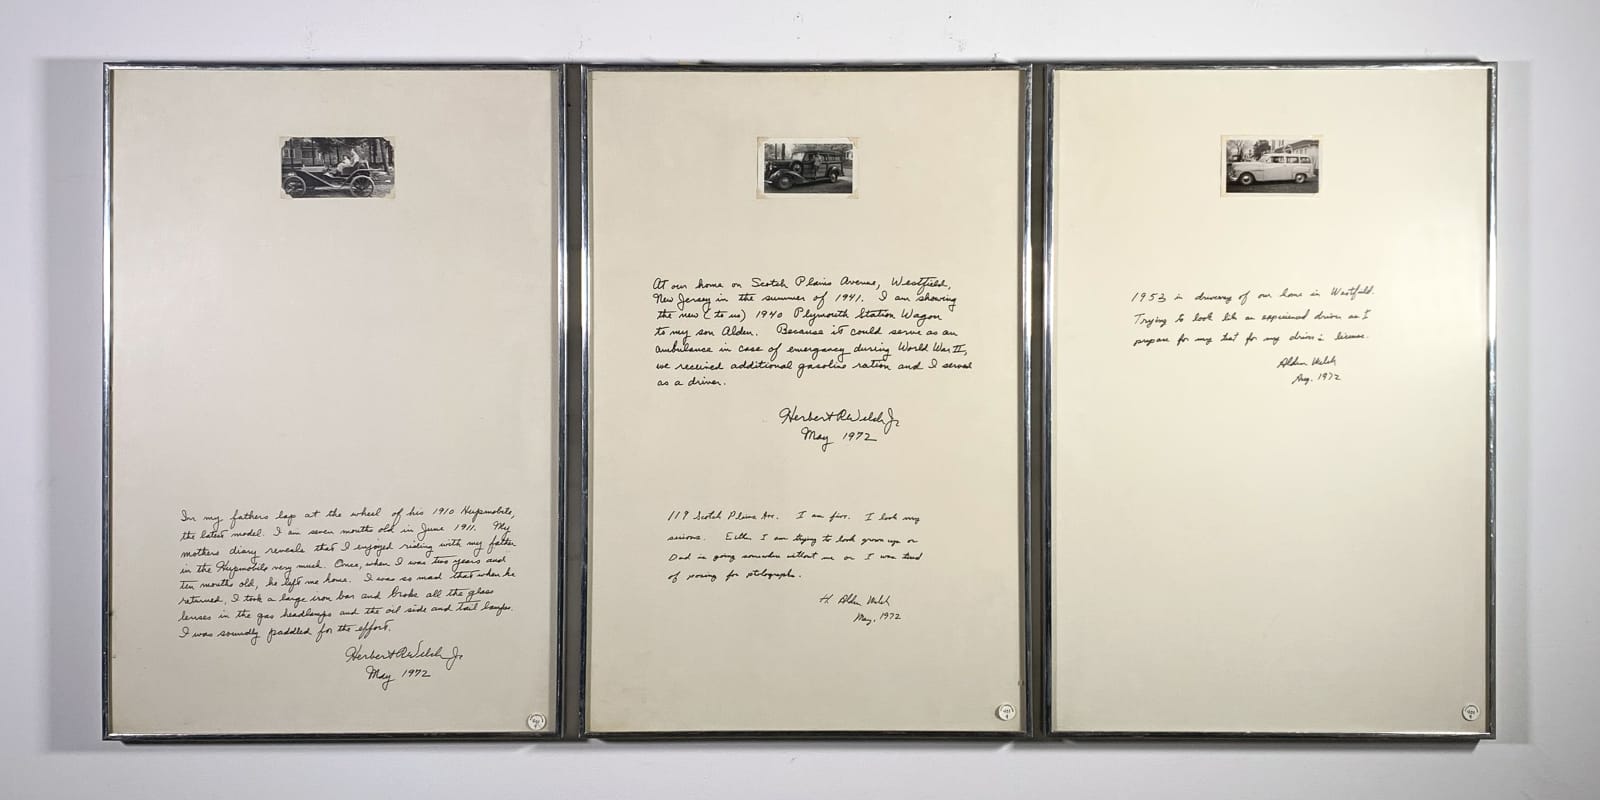 In my fathers lap at the wheel of his 1910 Hupmobile,
the latest model. I am seven months old in June 1911. My
mothers diary reveals that I enjoyed riding with my father
in the Hupmobile very much. Once, when I was two years and
ten months old, he left me home. I was so mad that when he
returned, I took a large iron bar and broke all the glass
lenses in the gas headlamps and the oil side and tail lamps.
I was soundly paddled for the effort.
Herbert R Welch Jr
May 1972
At our home on Scotch Plains Avenue, Westfield,
New Jersey in the summer of 1941. I am showing
the new (to us) 1940 Plymouth Station Wagon
to my son Alden. Because it could serve as an
ambulance in case of emergency during World War II,
we received additional gasoline ration and I served
as a driver.
Herbert R Welch Jr
May 1972
119 Scotch Plains Ave. I am five. I look very
serious. Either I am trying to look grown up or
Dad is going somewhere without me or I was tired
of posing for photographs.
H. Alden Welch
May, 1972
1953 in driveway of our home in Westfield.
Trying to look like an experienced driver as I
prepare for my test for my driver's license.
Alden Welch
Aug. 1972